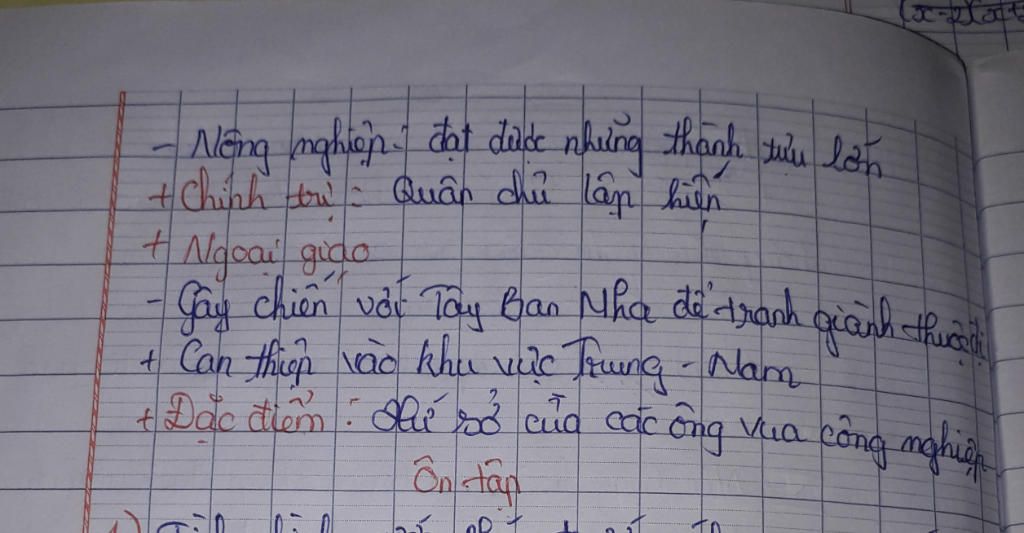 (x-2)(x+
- Nông nghiệp: đạt được những thành tựu lớn
+ Chính trị: Quân chủ lập hiến
+ Ngoại giao
- Gây chiến với Tây Ban Nha để tranh giành thuộc địa
+ Can thiệp vào khu vực Trung - Nam
+ Đặc điểm: xứ sở của các ông vua công nghiệp
Ôn tập